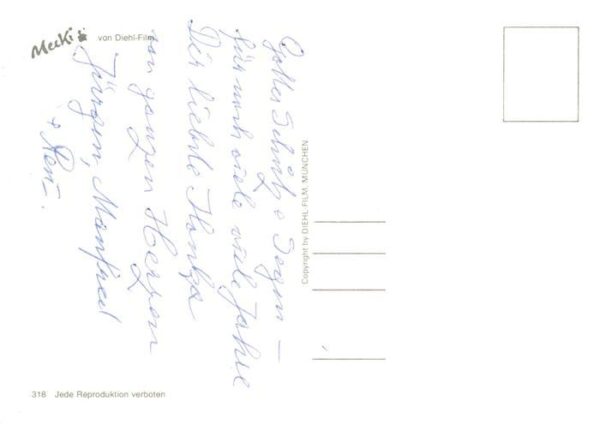 Mecki
von Diehl-Film
Gottes Schutz + Segen —
für noch viele viele Jahre
Dir liebste
von ganzen Herzen
Jürgen, Manfred
+
Copyright by DIEHL-FILM, MÜNCHEN
318 Jede Reproduktion verboten